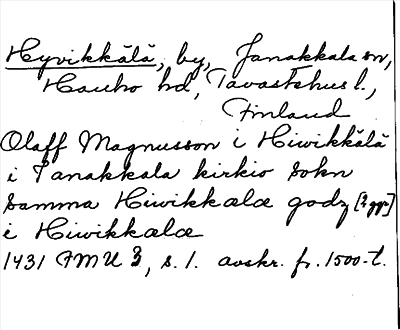 Hyvikkälä, by, Janakkala sn,
Hauho hd, Tavastehus l.,
Finland
Olaff Magnusson i Hiwikkälä
i Janakkala kirkio sokn
samma Hiwikkalæ godz [2 ggr]
i Hiwikkalæ
1431 FMU 3, s. 1. avskr. fr. 1500-t.